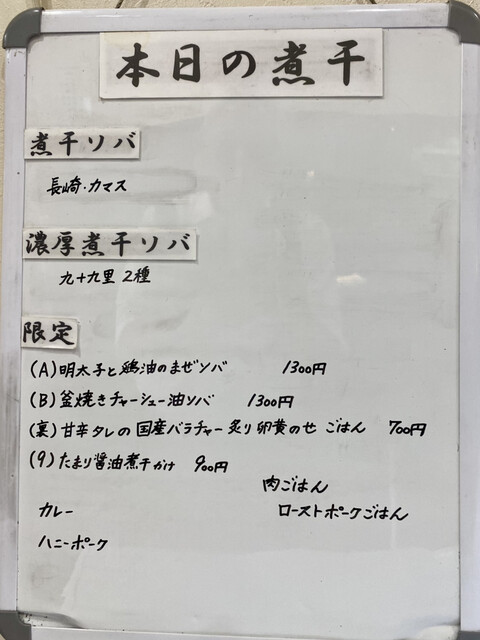 本日の煮干
煮干ソバ
長崎・カマス
濃厚煮干ソバ
九十九里 2種
限定
(A)明太子と鶏油のまぜソバ 1300円
(B)釜焼きチャーシュー油ソバ 1300円
(裏)甘辛タレの国産バラチャー炙り卵黄のせ ごはん 700円
(9)たまり醤油煮干かけ 900円
肉ごはん
カレー ローストポークごはん
ハニーポーク